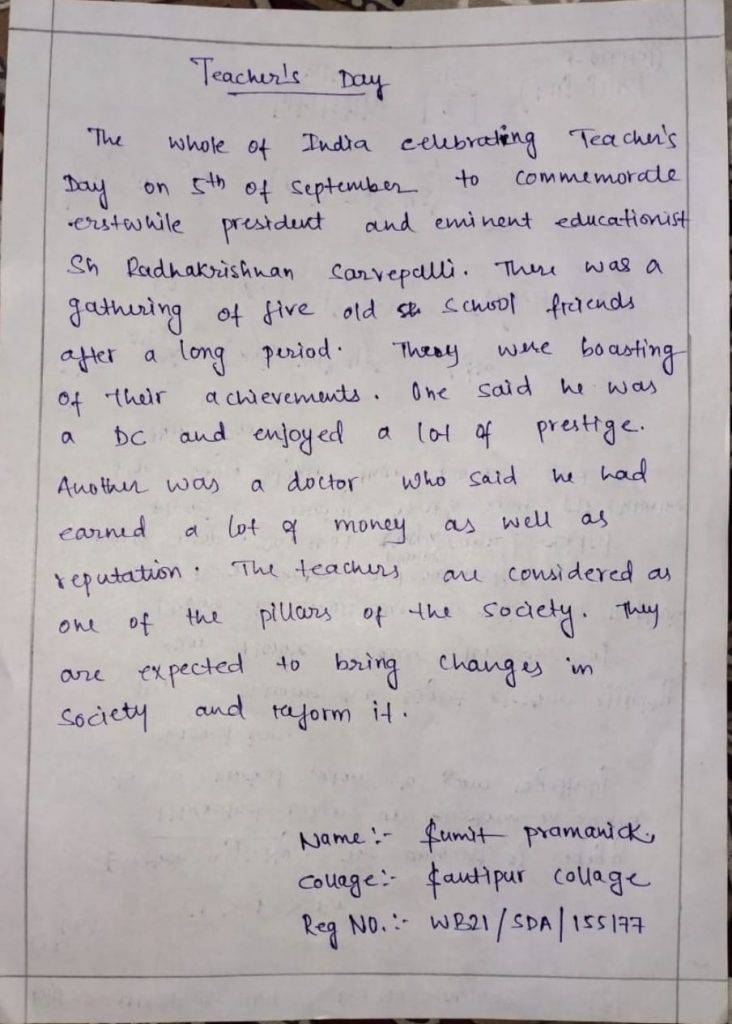 Teacher's Day
The whole of India celebrating Teacher's
Day on 5th of September to commemorate
erstwhile president and eminent educationist
Sh Radhakrishnan Sarvepalli. There was a
gathering of five old school friends
after a long period. They were boasting
of their achievements. One said he was
a DC and enjoyed a lot of prestige.
Another was a doctor who said he had
earned a lot of money as well as
reputation. The teachers are considered as
one of the pillars of the society. They
are expected to bring changes in
society and reform it.
Name :- Sumit pramanick,
collage :- Santipur collage
Reg NO. :- WB21/SDA/155177